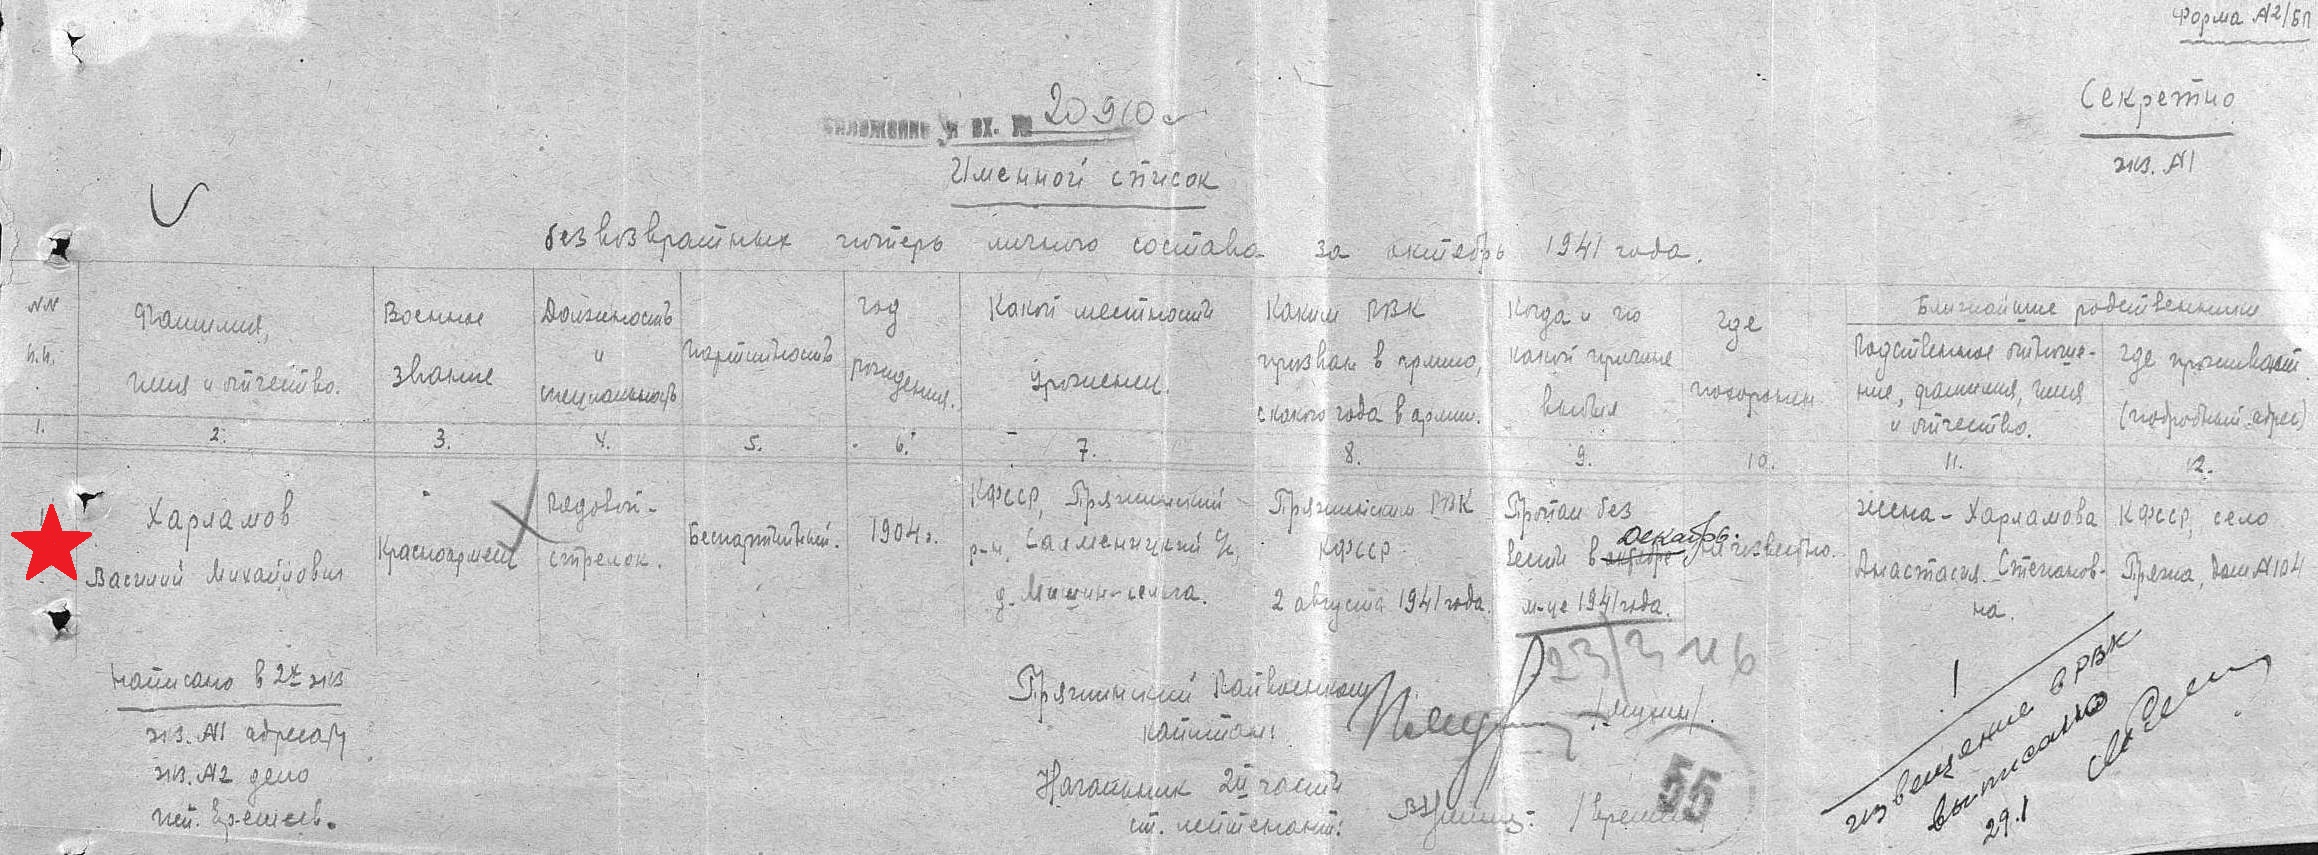 Форма №2/БП
Секретно
экз. №1
вх. № 20910
Именной список
безвозвратных потерь личного состава за октябрь 1941 года.
NN п.п.
Фамилия, имя и отчество.
Военное звание
Должность и специальность
Партийность
год рождения.
Какой местности уроженец.
Каким РВК призван в армию, с какого года в армии.
Когда и по какой причине выбыл
где похоронен
Ближайшие родственники
Родственное отноше-
ние, фамилия, имя
и отчество.
где проживает
(подробный адрес)
1. 2. 3. 4. 5. 6. 7. 8. 9. 10. 11. 12.
1
Харламов
Василий Михайлович
Красноармеец
Рядовой-
стрелок.
Беспартийный.
1904г.
КФССР, Пряжинский
р-н, Салменицкий с/с,
д. Мишин-сельга.
Пряжинским РВК
КФССР
2 августа 1941 года.
Пропал без
вести в октябре декабр.
м-це 1941 года.
неизвестно.
жена - Харламова
Анастасия Степанов-
на.
КФССР, село
Пряжа, дом №104
Написано в 2х экз
экз. №1 адресату
экз. №2 дело
исп. Еремеев.
Пряжинский Райвоенком
капитан:
/Мухин/.
Начальник 2й части
ст. лейтенант:
55
1
извещение в РВК
выписано
29.1